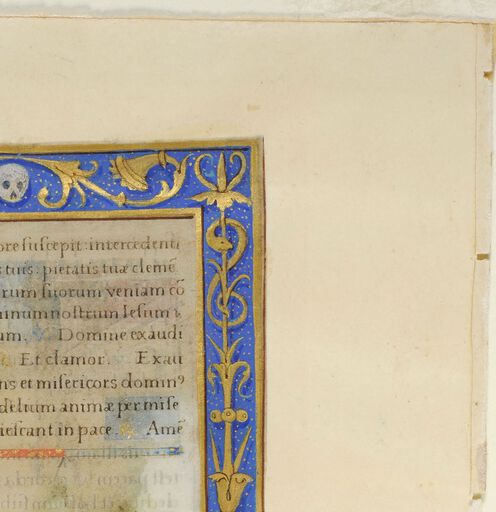 ore suscepit: intercedenti
s tuis: pietatis tuæ clemē
rum suorum veniam cō
minum nostrum Iesum
um. V Domine exaudi
Et clamor. Exau
ns et misericors dominꝰ
delium animæ per mise
iescant in pace. Amē